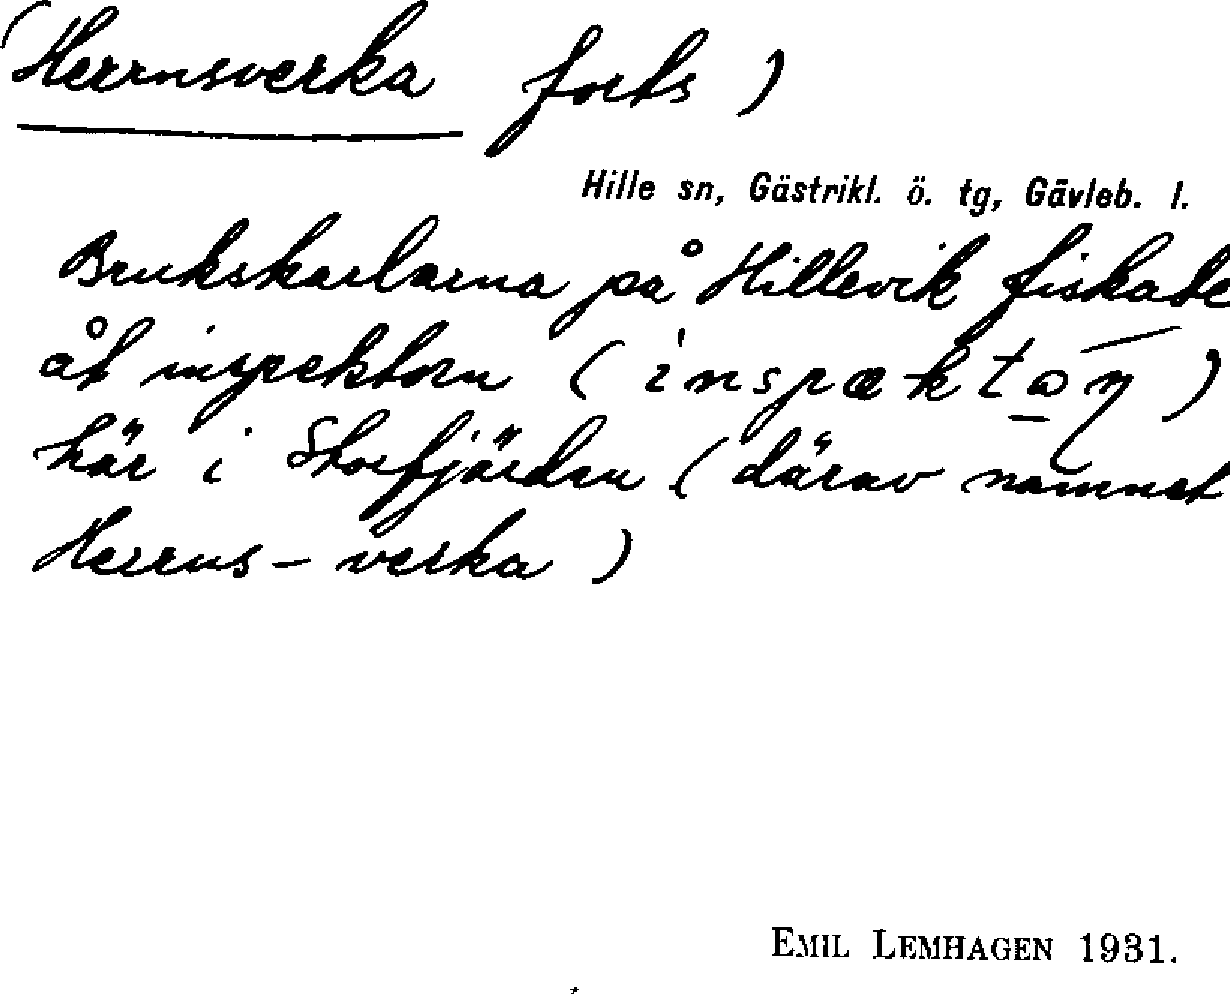 (Herrnsverka forts)
Hille sn, Gästrikl. ö. tg, Gävleb. l.
Brukskarlarna på Hillevik fiskade
åt inspektorn (inspæktɷɳ)
här i Storfjärden (därav namnet
Herrns-verka)
EMIL LEMHAGEN 1931.